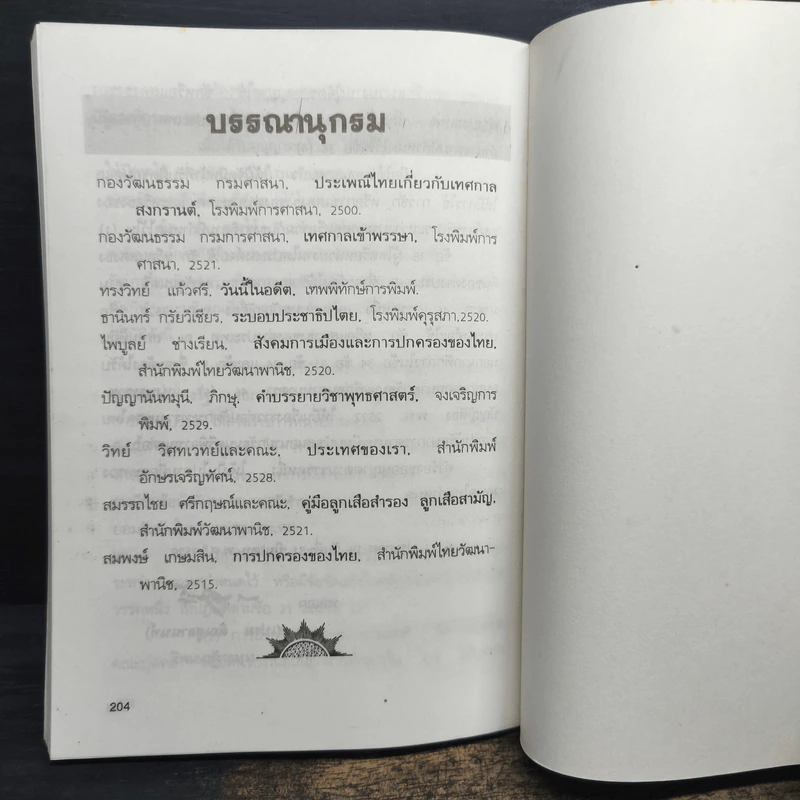 บรรณานุกรม
กองวัฒนธรรม กรมศาสนา. ประเพณีไทยเกี่ยวกับเทศกาล
สงกรานต์. โรงพิมพ์การศาสนา, 2500.
กองวัฒนธรรม กรมการศาสนา. เทศกาลเข้าพรรษา. โรงพิมพ์การ
ศาสนา, 2521.
ทรงวิทย์ แก้วศรี. วันนี้ในอดีต. เทพพิทักษ์การพิมพ์.
ธานินทร์ กรัยวิเชียร. ระบอบประชาธิปไตย. โรงพิมพ์คุรุสภา,2520.
ไพบูลย์ ช่างเรียน. สังคมการเมืองและการปกครองของไทย.
สำนักพิมพ์ไทยวัฒนาพานิช, 2520.
ปัญญานันทมุนี, ภิกษุ. คำบรรยายวิชาพุทธศาสตร์. จงเจริญการ
พิมพ์, 2529.
วิทย์ วิศทเวทย์และคณะ. ประเทศของเรา. สำนักพิมพ์
อักษรเจริญทัศน์, 2528.
สมรรถไชย ศรีกฤษณ์และคณะ. คู่มือลูกเสือสำรอง ลูกเสือสามัญ.
สำนักพิมพ์วัฒนาพานิช, 2521.
สมพงษ์ เกษมสิน. การปกครองของไทย. สำนักพิมพ์ไทยวัฒนา-
พานิช, 2515.
204